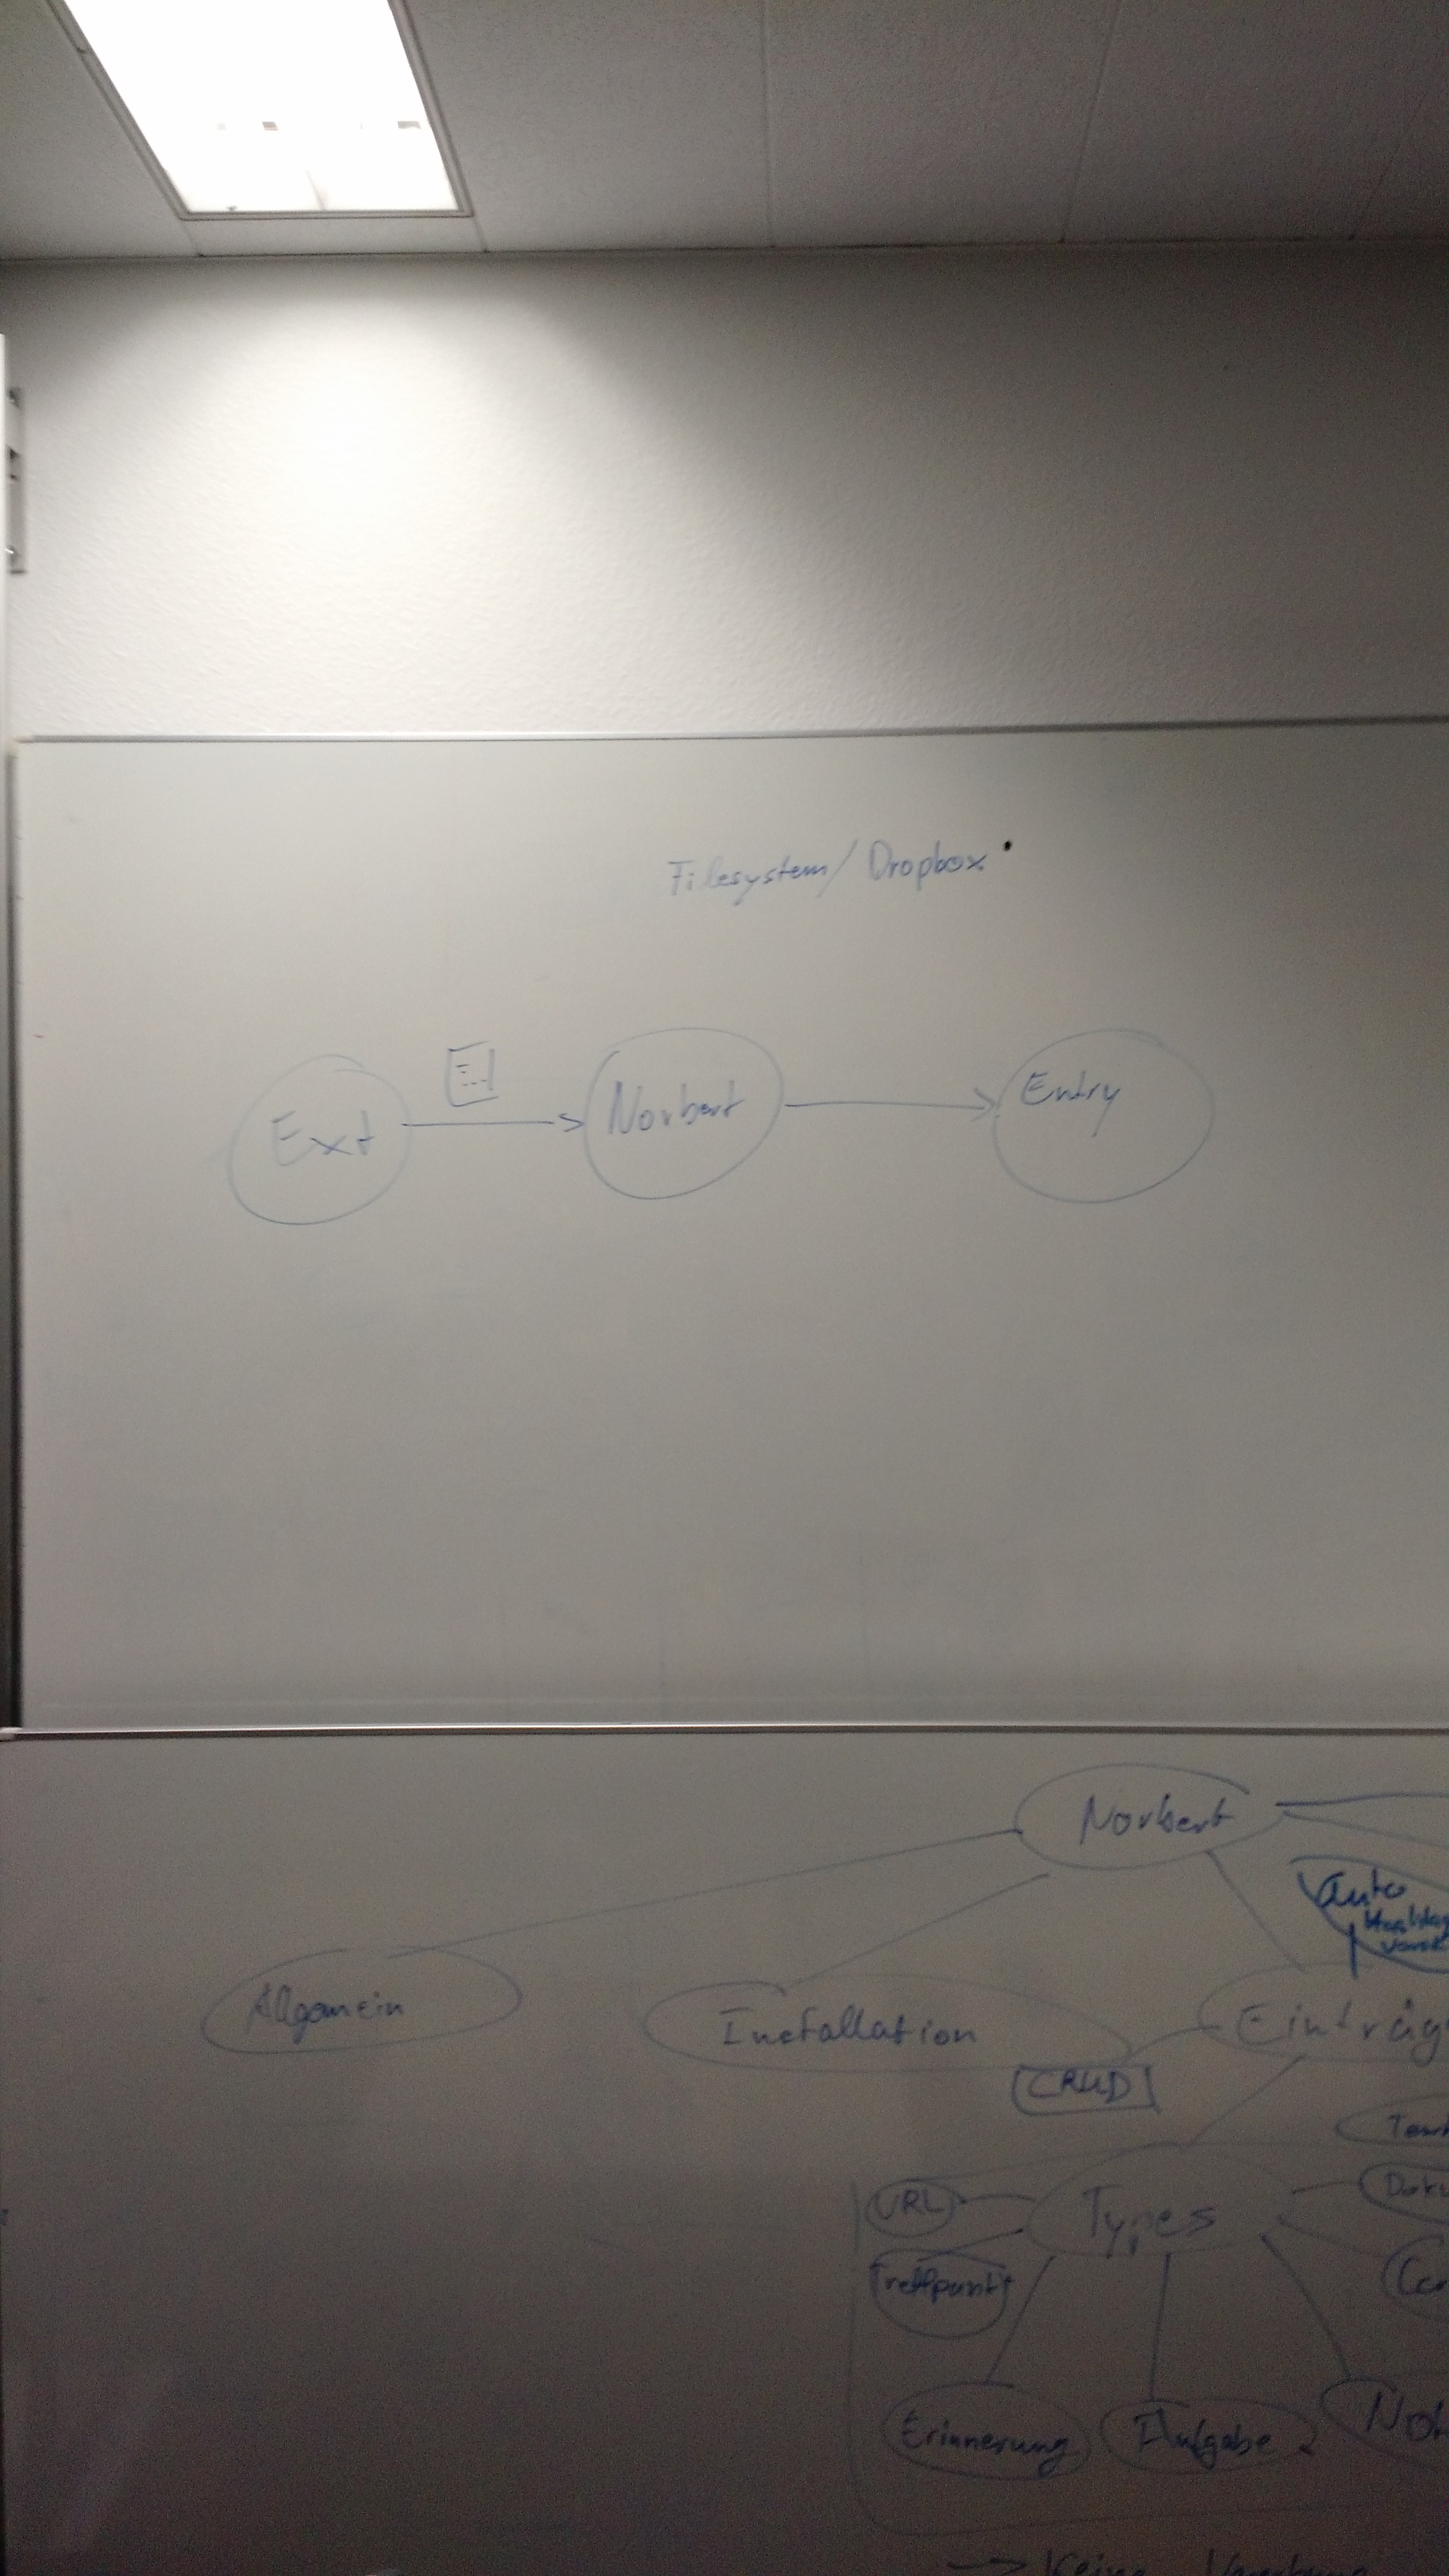 Filesystem / Dropbox
Ext
Norbert
Entry
Norbert
Auto
Allgemein
Installation
Einträg
CRUD
URL
Types
Treffpunkt
Erinnerung
Aufgabe
→ Keine